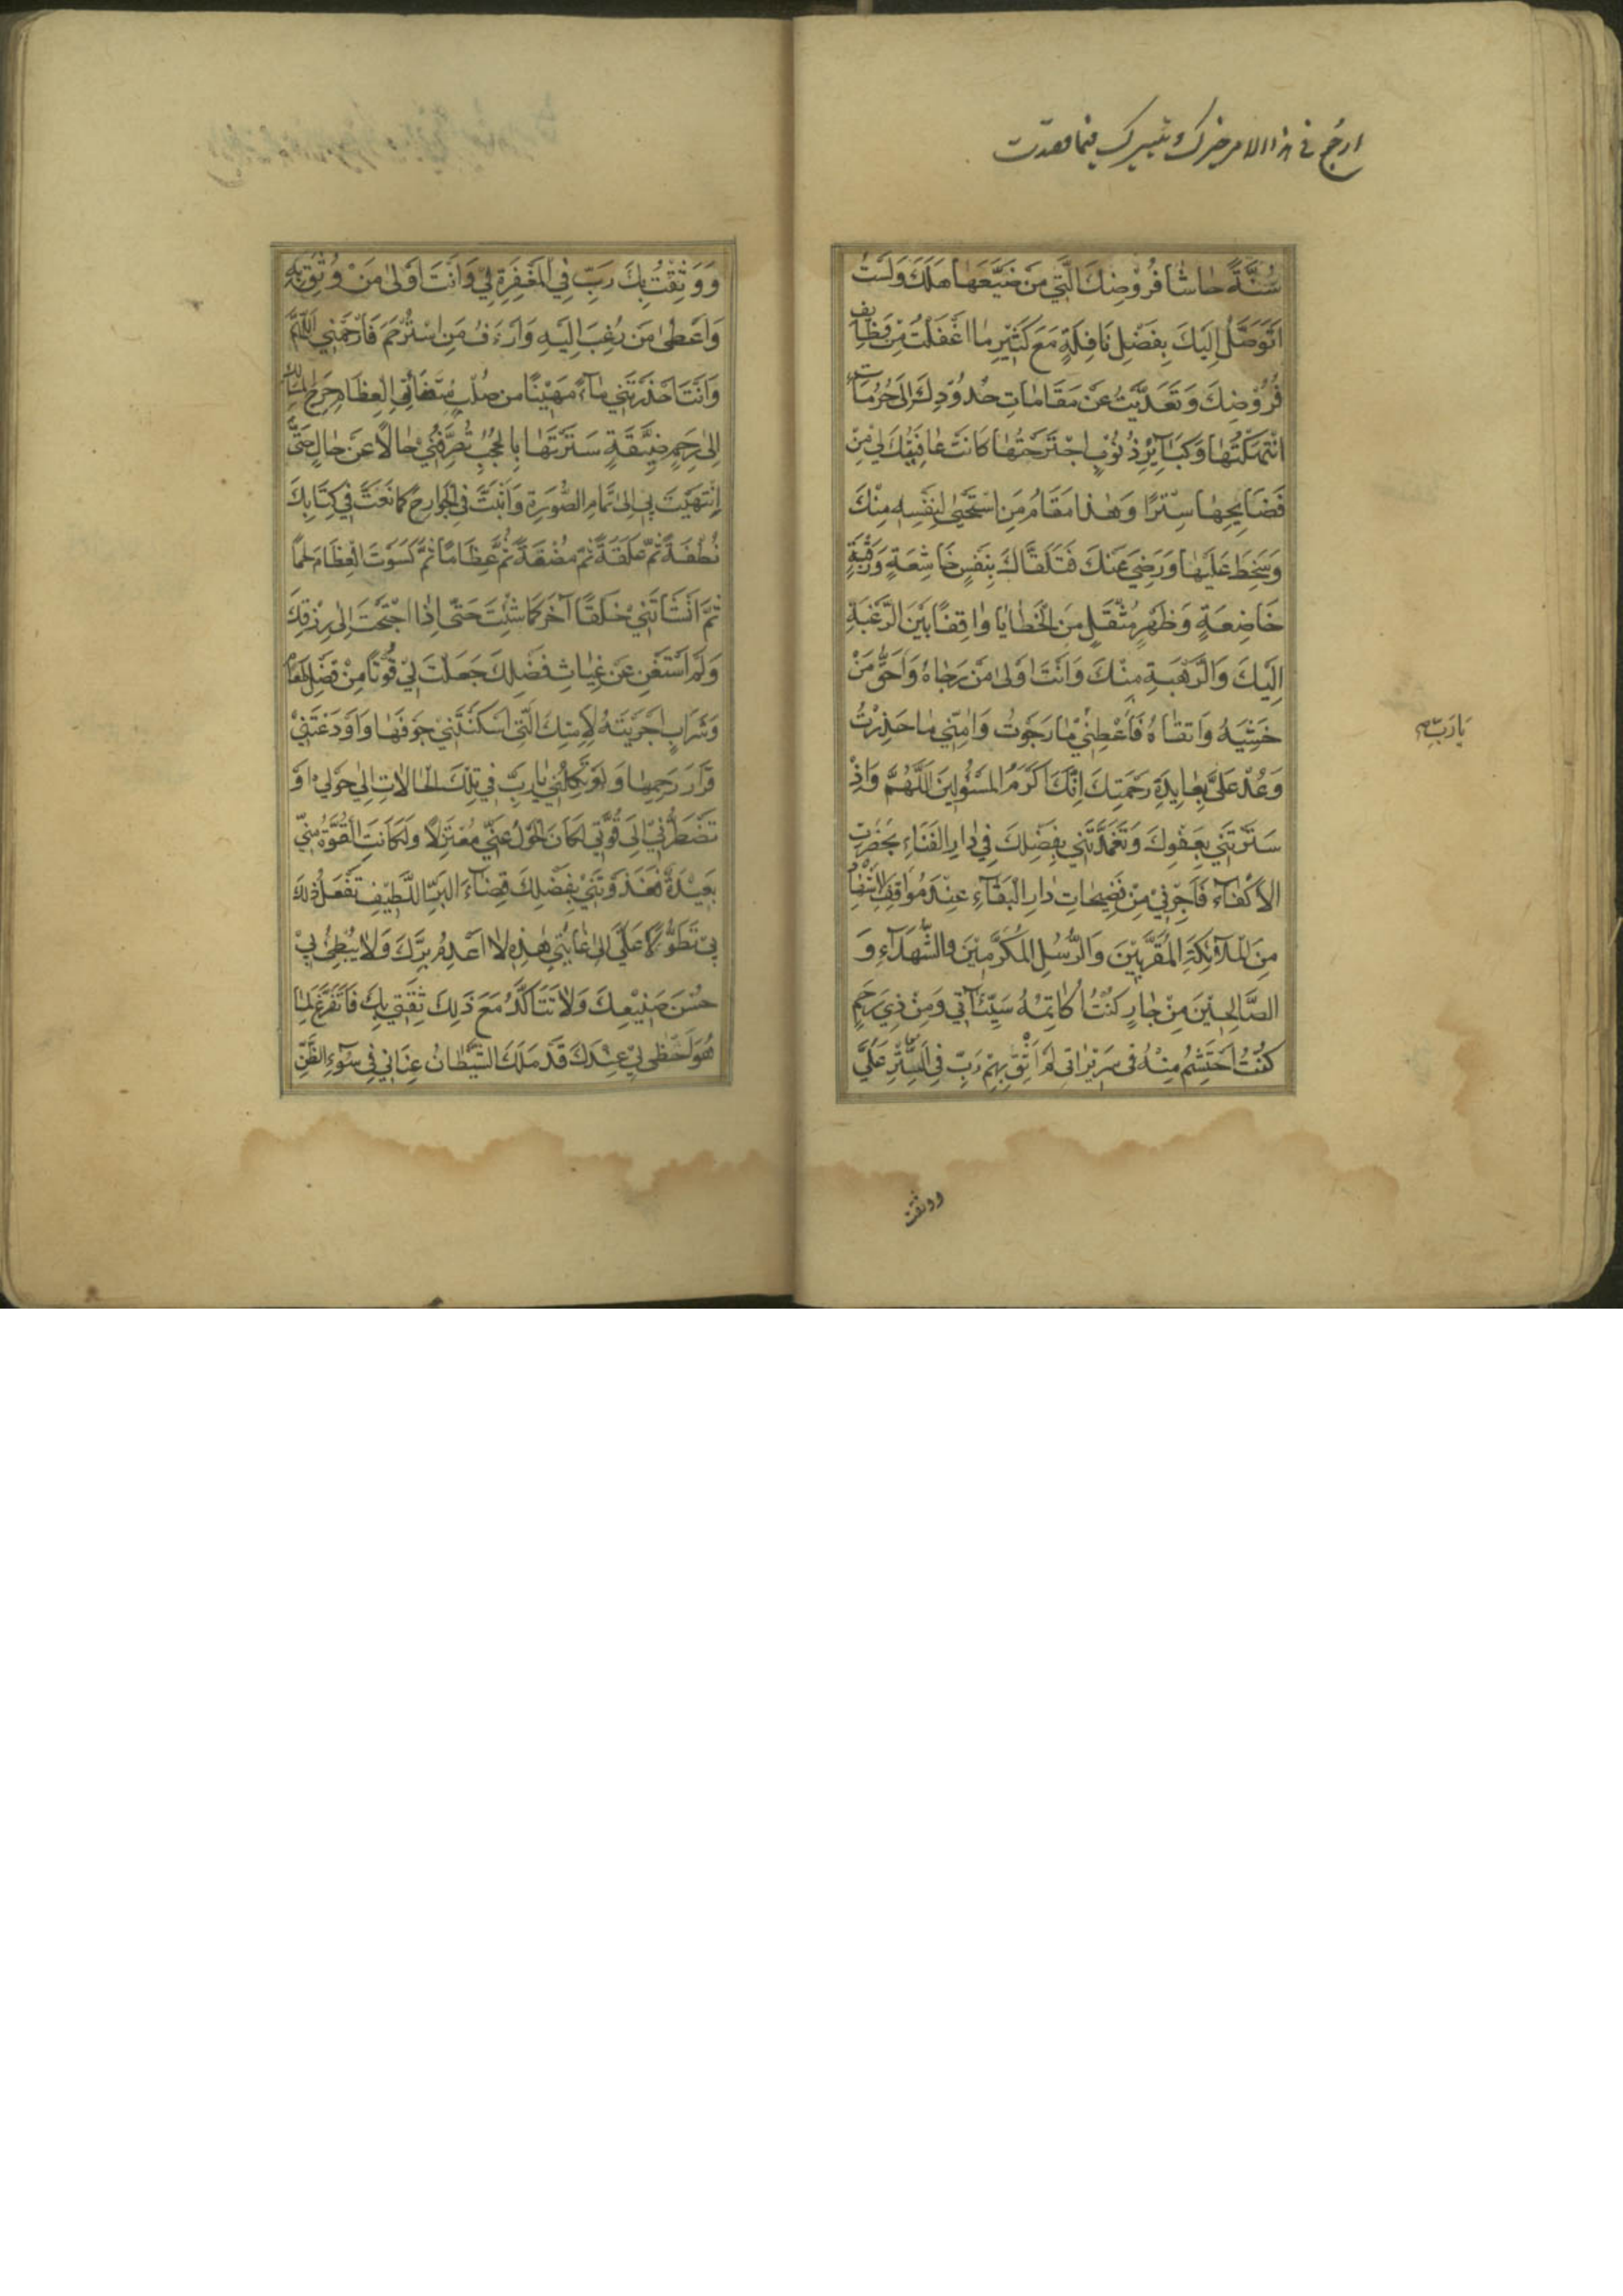 سُنَّةً حاشا فُرُوضِكَ الَّتِي مَن ضَيَّعَهٰا هَلَكَ وَلَسْتُ
اَتَوَصَّلُ اِلَيْكَ بِفَضْلِ نَافِلَةٍ مَعَ كَثِيْرِ مٰا اَغْفَلْتُ مِنْ وَظٰايِفِ
فُرُوْضِكَ وَتَعَدَّيْتُ عَنْ مَقَامٰاتِ حُدُوْدِكَ اِلىٰ حُرُمٰاتٍ
انْتَهَكْتُهٰا وَكَبٰآئِرِ ذُنُوْبٍ اجْتَرَحْتُهٰا كَانَتْ عٰافِيَتُكَ لِيْ مِنْ
فَضَايِحِهٰا سِتْرًا وَهٰذا مَقَامُ مَنِ اسْتَحْيىٰ لِنَفْسِهٖ مِنْكَ
وَسَخِطَ عَلَيْهٰا وَرَضِيَ عَنْكَ فَتَلَقَّاكَ بِنَفْسٍ خَاشِعَةٍ وَرَقَبَةٍ
خَاضِعَةٍ وَظَهْرٍ مُثْقَلٍ مِنَ الْخَطٰايٰا وٰاقِفًا بَيْنَ الرَّغْبَةِ
اِلَيْكَ وَالرَّهْبَةِ مِنْكَ وَاَنْتَ اَوْلىٰ مَنْ رَجٰاهُ وَاَحَقُّ مَنْ
خَشِيَهُ وَاتَّقٰاهُ فَاَعْطِنِيْ مٰا رَجَوْتُ وَاٰمِنِّي مٰا حَذِرْتُ
وَعُدْ عَلَيَّ بِعٰايِدَةِ رَحْمَتِكَ اِنَّكَ اَكْرَمُ الْمَسْئُولِينَ اَللّٰهُمَّ وَاِذْ
سَتَرْتَنِي بِعَفْوِكَ وَتَغَمَّدْتَنِي بِفَضْلِكَ فِي دٰارِ الْفَنَاءِ بِحَضْرَةِ
الْاَكْفٰآءِ فَاَجِرْنِيْ مِنْ فَضِيحٰاتِ دٰارِ الْبَقٰآءِ عِنْدَ مَوٰاقِفِ الْاَشْهٰادِ
مِنَ الْمَلَآئِكَةِ الْمُقَرَّبِيْنَ وَالرُّسُلِ الْمُكَرَّمِيْنَ وَالشُّهَدٰآءِ وَ
الصَّالِحِيْنَ مِنْ جٰارٍ كُنْتُ اُكٰاتِمُهُ سَيِّئٰآتِي وَمِنْ ذِي رَحِمٍ
كُنْتُ اَحْتَشِمُ مِنْهُ فِى سَرِيْرٰاتِى لَمْ اَثِقْ بِهِمْ رَبِّ فِى السِّتْرِ عَلَيَّ
يَا رَبِّ
ووثقت
وَوَثِقْتُ بِكَ رَبِّ فِي الْمَغْفِرَةِ لِيْ وَاَنْتَ اَوْلىٰ مَنْ وُثِقَ بِهِ
وَاَعْطىٰ مَن رُغِبَ اِلَيْهِ وَاَرْءَفُ مَنِ اسْتُرْحِمَ فَارْحَمْنِي اَللّٰهُمَّ
وَاَنْتَ حَدَرْتَنِي مٰآءً مَهِيْنًا من صُلْبٍ مُتَضٰائِقِ الْعِظٰامِ حَرِجِ الْمَسٰالِكِ
اِلىٰ رَحِمٍ ضَيِّقَةٍ سَتَرْتَهٰا بِالْحُجُبِ تُصَرِّفُنِيْ حٰالًا عَنْ حٰالٍ حَتّىٰ
اِنْتَهَيْتَ بِي اِلىٰ تَمٰامِ الصُّوْرَةِ وَاَثْبَتَّ فِيَّ الْجَوٰارِحَ كَمٰا نَعَتَّ فِي كِتٰابِكَ
نُطْفَةً ثُمَّ عَلَقَةً ثُمَّ مُضْغَةً ثُمَّ عِظٰامًا ثُمَّ كَسَوْتَ الْعِظَامَ لَحْمًا
ثُمَّ اَنْشَاْتَنِيْ خَلْقًا آخَرَ كَمٰا شِئْتَ حَتّٰى اِذٰا احْتَجْتُ اِلىٰ رِزْقِكَ
وَلَمْ اَسْتَغْنِ عَنْ غِيٰاثِ فَضْلِكَ جَعَلْتَ لِيْ قُوْتًا مِنْ فَضْلِ طَعٰامٍ
وَشَرَابٍ اَجْرَيْتَهُ لِاَمَتِكَ الَّتِى اَسْكَنْتَنِيْ جَوْفَهٰا وَاَوْدَعْتَنِيْ
قَرَارَ رَحِمِهٰا وَلَوْ تَكِلُنِيْ يٰارَبِّ فِي تِلْكَ الْحٰالٰاتِ اِلىٰ حَوْلِي اَوْ
تَضْطَرُّنِيْ اِلىٰ قُوَّتِي لَكٰانَ الْحَوْلُ عَنِّي مُعْتَزِلًا وَلَكَانَتِ الْقُوَّةُ مِنِّي
بَعِيْدَةً فَغَذَوْتَنِيْ بِفَضْلِكَ غِذٰآءَ الْبَرِّ اللَّطِيْفِ تَفْعَلُ ذٰلِكَ
بِيْ تَطَوُّلًا عَلَيَّ اِلىٰ غٰايَتِيْ هٰذِهِ لاٰ اَعْدَمُ بِرَّكَ وَلاٰ يُبْطِئُ بِيْ
حُسْنُ صَنِيْعِكَ وَلاٰ تَتَاَكَّدُ مَعَ ذَلِكَ ثِقَتِي بِكَ فَاَتَفَرَّغَ لِمٰا
هُوَ اَحْظىٰ لِيْ عِنْدَكَ قَدْ مَلَكَ الشَّيْطٰانُ عِنٰانِي فِي سُوْءِ الظَّنِّ